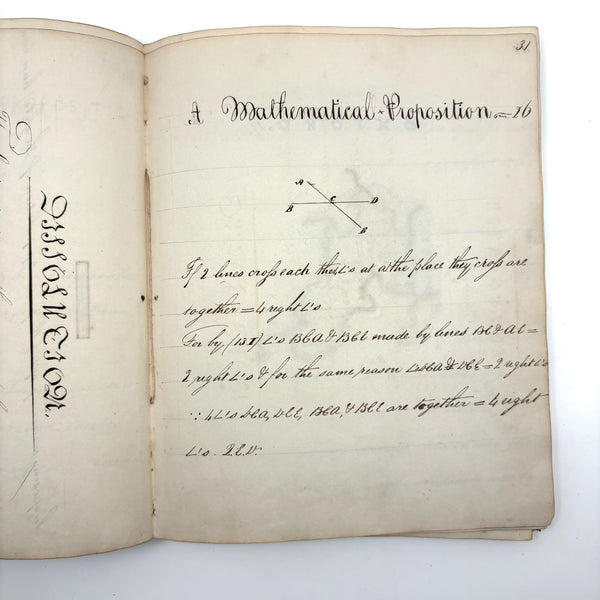 31
A Mathematical Proposition = 16
A
B
C
D
E
If 2 lines cross each the ∠'s at a the place they cross are
together = 4 right ∠'s
For by (13.1) ∠'s BCA & BCE made by lines BC & AE =
2 right ∠'s & for the same reason ∠'s DCA & DCE = 2 right ∠'s
∵ 4 ∠'s DCA, DCE, BCA, & BCE are together = 4 right
∠'s. Q.E.D.